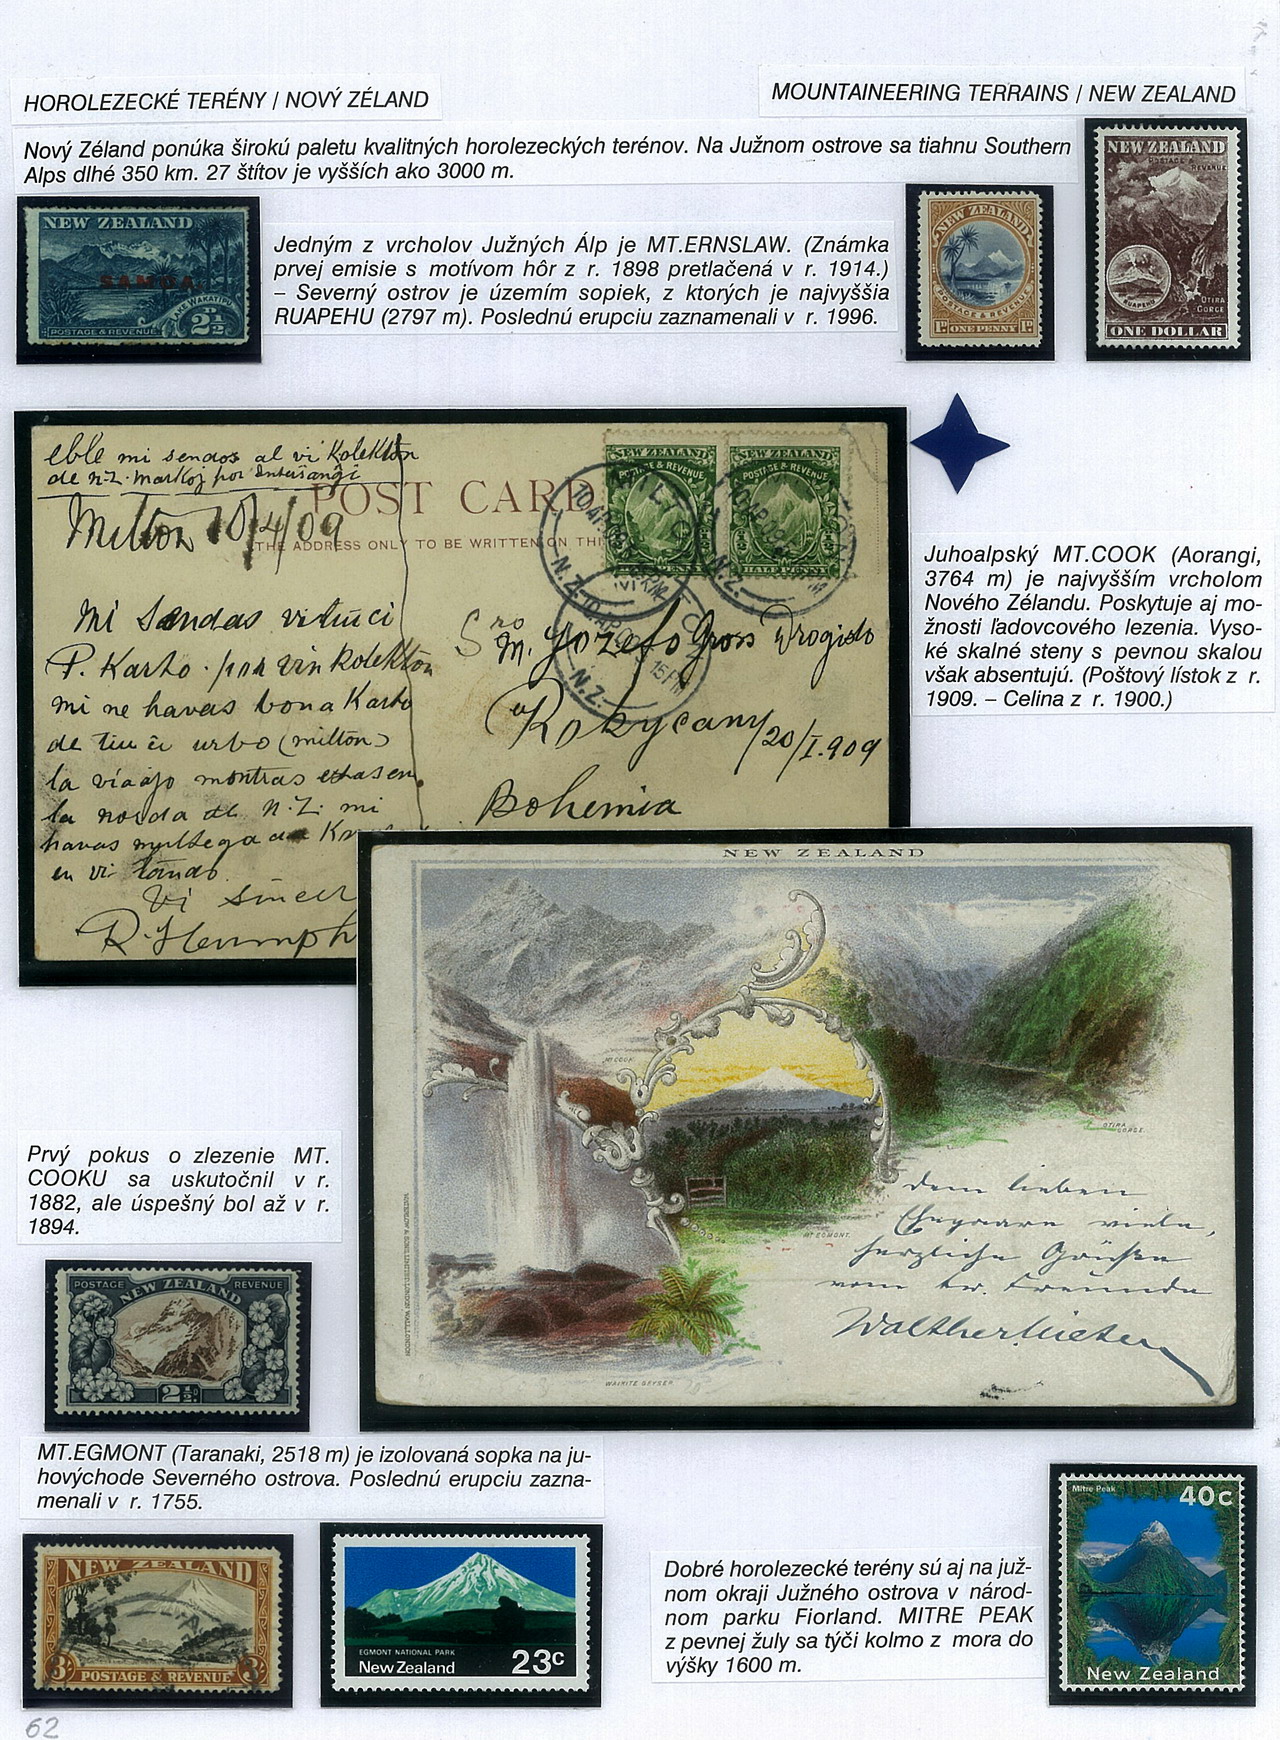 HOROLEZECKÉ TERÉNY / NOVÝ ZÉLAND
MOUNTAINEERING TERRAINS / NEW ZEALAND
Nový Zéland ponúka širokú paletu kvalitných horolezeckých terénov. Na Južnom ostrove sa tiahnu Southern
Alps dlhé 350 km. 27 štítov je vyšších ako 3000 m.
NEW ZEALAND
SAMOA.
LAKE WAKATIPU
POSTAGE & REVENUE
2½
Jedným z vrcholov Južných Álp je MT.ERNSLAW. (Známka
prvej emisie s motívom hôr z r. 1898 pretlačená v r. 1914.)
– Severný ostrov je územím sopiek, z ktorých je najvyššia
RUAPEHU (2797 m). Poslednú erupciu zaznamenali v r. 1996.
NEW ZEALAND
POSTAGE & REVENUE
1D ONE PENNY 1D
NEW ZEALAND
POSTAGE & REVENUE
RUAPEHU
OTIRA
GORGE
ONE DOLLAR
eble mi sendos al vi Kolekton
de N-Z. markoj por Intersangi
Milton 10/4/09
POST CARD
THE ADDRESS ONLY TO BE WRITTEN ON THI
NEW ZEALAND
POSTAGE & REVENUE
PENNY
NEW ZEALAND
POSTAGE & REVENUE
HALF PENNY
N.Z.
N.Z.
N.Z.
Mi sendas
P. Karto. por vin kolekton
mi ne havas bona Karto
de tiu ĉi urbo (milton)
la
la norda de N.Z. mi
havas
en vi
Vi sincer
R. Humph
Sro
M. Jozefo Gross Drogisto
Rokycany
20/I.909
Bohemia
Juhoalpský MT.COOK (Aorangi,
3764 m) je najvyšším vrcholom
Nového Zélandu. Poskytuje aj mo-
žnosti ľadovcového lezenia. Vyso-
ké skalné steny s pevnou skalou
však absentujú. (Poštový lístok z r.
1909. – Celina z r. 1900.)
NEW ZEALAND
MT COOK
OTIRA
GORGE.
MT EGMONT.
WAIRITE GEYSER
WATERLOW & SONS LIMITED. LONDON WALL, LONDON
Dem lieben
Ehepaare viele,
herzliche Grüße
vom tr. Freunde
Prvý pokus o zlezenie MT.
COOKU sa uskutočnil v r.
1882, ale úspešný bol až v r.
1894.
POSTAGE NEW ZEALAND REVENUE
2½D.
MT.EGMONT (Taranaki, 2518 m) je izolovaná sopka na ju-
hovýchode Severného ostrova. Poslednú erupciu zazna-
menali v r. 1755.
NEW ZEALAND
3/- POSTAGE & REVENUE 3/-
EGMONT NATIONAL PARK
New Zealand 23c
Dobré horolezecké terény sú aj na juž-
nom okraji Južného ostrova v národ-
nom parku Fiorland. MITRE PEAK
z pevnej žuly sa týči kolmo z mora do
výšky 1600 m.
Mitre Peak 40c
New Zealand
62